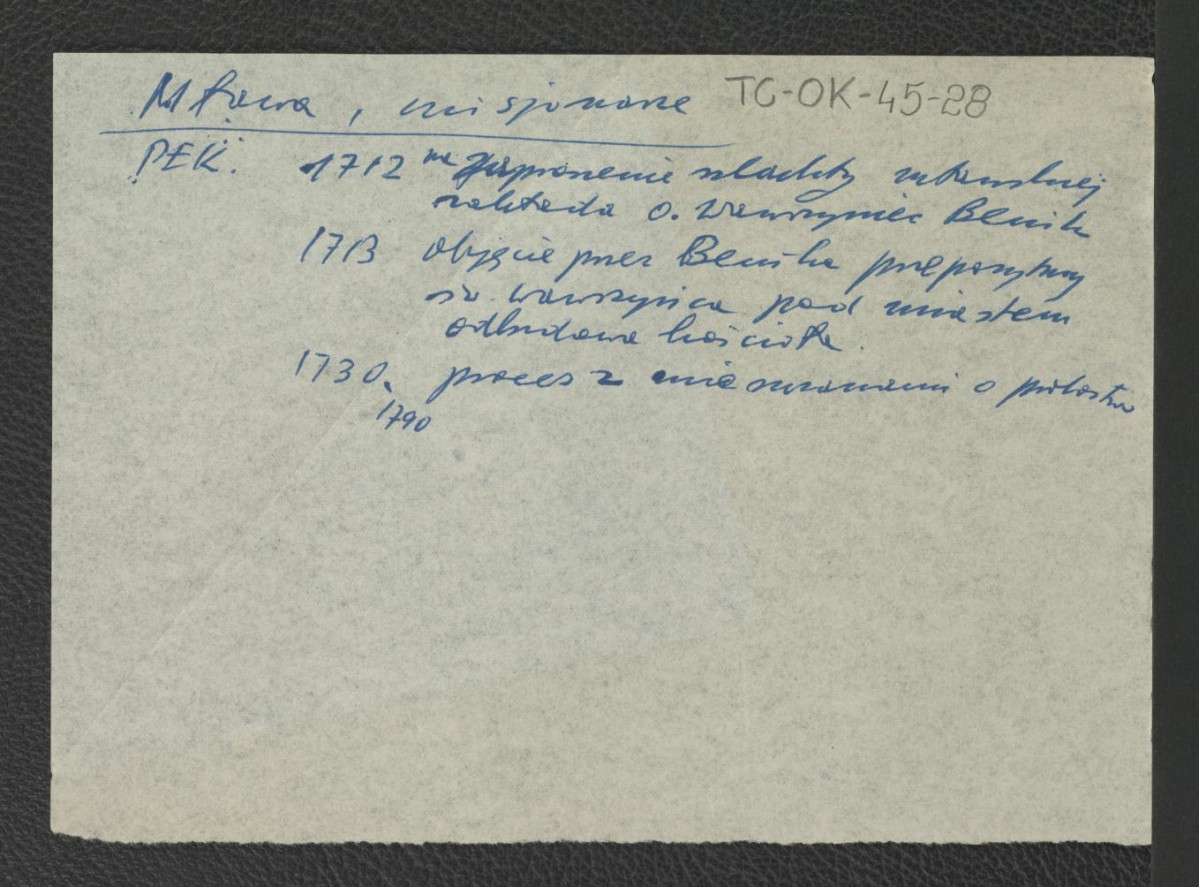 Mława, misjonarze TC-OK-45-28
PEK. 1712 na zaproszenie szlachty mławskiej
zakłada o. Wawrzyniec Benik
1713 objęcie przez Benika prepozytury
św. Wawrzyńca pod miastem
odbudowa kościoła.
1730. proces z mieszczanami o probostwo
1790